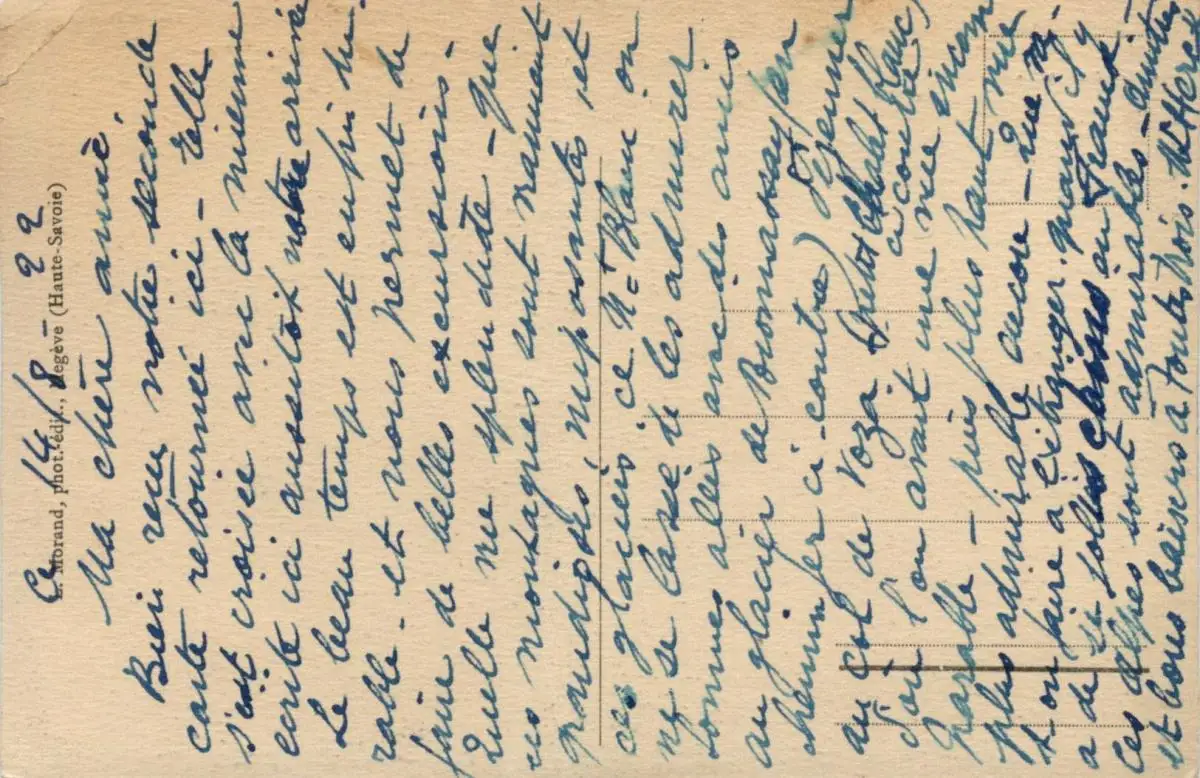 Ce 14-8-22
L. Morand, phot. édit., Megève (Haute-Savoie)
Ma chère amie,
Bien reçu votre seconde
carte retourné ici - Elle
s'est croisée avec la mienne
écrite ici aussitôt notre arrivée
Le beau temps est enfin du-
rable - et nous permet de
faire de belles excursions -
Quelle vue splendide - que
ces montagnes sont vraiment
grandioses, imposantes, et
ces glaciers ce Mt Blanc on
ne se lasse de les admirer
sommes allés avec des amis
au glacier de Bionnassay (en
chemin fer ci-contre) Déjeuner
au col de Voza (petit chalet blanc,
ci contre)
d'où l'on avait une vue incom
parable - puis plus haut vue
plus admirable encore - Que va
t-on faire à l'étranger quand il y
a de si jolies choses en France.
Ces Alpes sont admirables - Amitiés
et bons baisers à toutes trois.